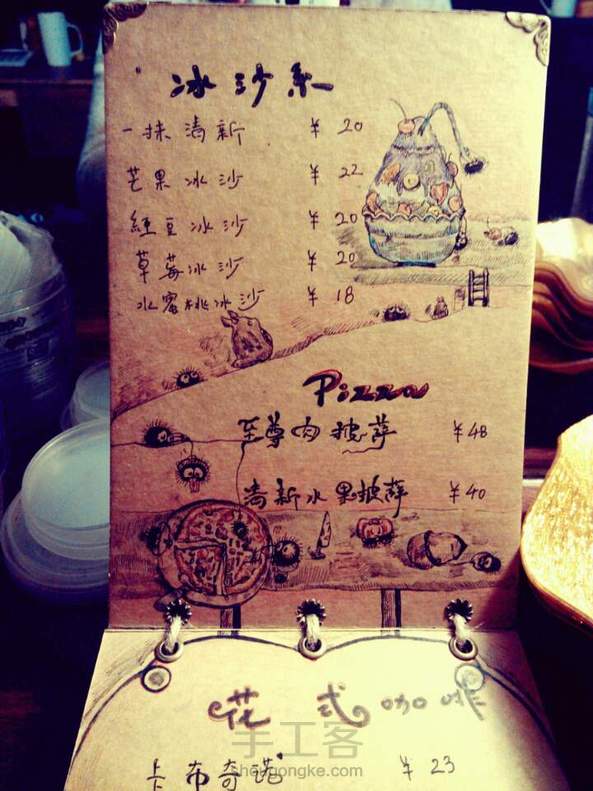 冰沙系
一抹清新 ¥ 20
芒果冰沙 ¥ 22
红豆冰沙 ¥ 20
草莓冰沙 ¥ 20
水蜜桃冰沙 ¥ 18
Pizza
至尊肉披萨 ¥48
清新水果披萨 ¥40
花式咖啡
卡布奇诺 ¥ 23
手工客
shougongke.com